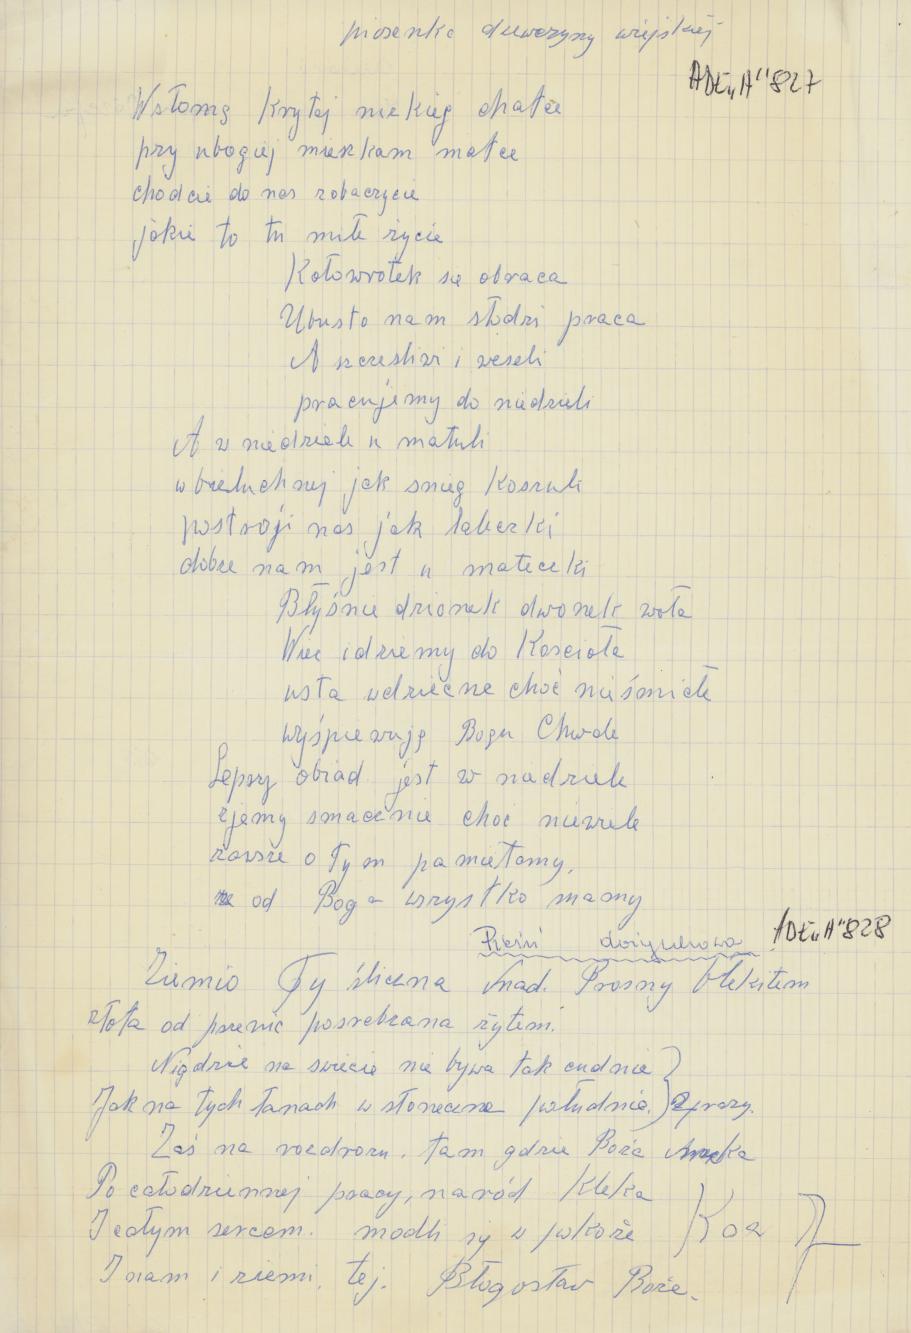 piosenka dziewczyny wiejskiej
ADŁ "A" 827
Wsłomą Krytej niskieg chatce
przy ubogiej mieszkam matce
chodcie do nas zobaczycie
jakie to tu miłe życie
Kołowrotek się obraca
Ubusto nam słodzi praca
A szczesliwi i weseli
pracujemy do niedzieli
A w niedziele u matuli
w bieluchnej jak snieg Koszuli
postroji nas jak laleczki
dobrze nam jest u mateczki
Błyśnie dzionek dwonek woła
Wiec idziemy do Kościoła
usta wdzieczne choć nieśmiałe
wyśpiewują Bogu Chwałe
Lepszy obiad jest w niedziele
zjemy smacznie choć niewiele
zawsze o Tym pamietamy,
że od Boga wszystko mamy
Pieśń dożynkowa ADŁ "A" 828
Ziemio Ty śliczna nad. Prosny błekitem
złota od pszenic posrebrzana żytem.
Nigdzie na swiecie nie bywa tak cudnie
Jak na tych łanach w słoneczne południe. 2 razy.
Zaś na rozdrożu. tam gdzie Boża Męka
Po całodziennej pracy, naród Kleka
I całym sercem. modli sy w pokoże
I nam i ziemi. tej. Błogosław Boże.